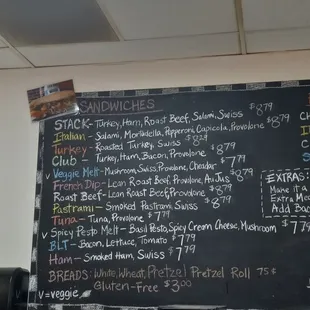 SANDWICHES
STACK - Turkey, Ham, Roast Beef, Salami, Swiss $8.79
Italian - Salami, Mortadella, Pepperoni, Capicola, Provolone $8.79
Turkey - Roasted Turkey, Swiss $8.29
Club - Turkey, Ham, Bacon, Provolone $8.79
v Veggie Melt - Mushroom, Swiss, Provolone, Cheddar $7.79
French Dip - Lean Roast Beef, Provolone, Au Jus $8.79
Roast Beef - Lean Roast Beef, Provolone $8.79
Pastrami - Smoked Pastrami, Swiss $8.79
Tuna - Tuna, Provolone $7.79
v Spicy Pesto Melt - Basil Pesto, Spicy Cream Cheese, Mushroom $7.79
BLT - Bacon, Lettuce, Tomato $7.79
Ham - Smoked Ham, Swiss $7.79
BREADS: White, Wheat, Pretzel Pretzel Roll 75¢
Gluten-Free $3.00
v = veggie
EXTRAS:
Make it a
Extra Me
Add Bac